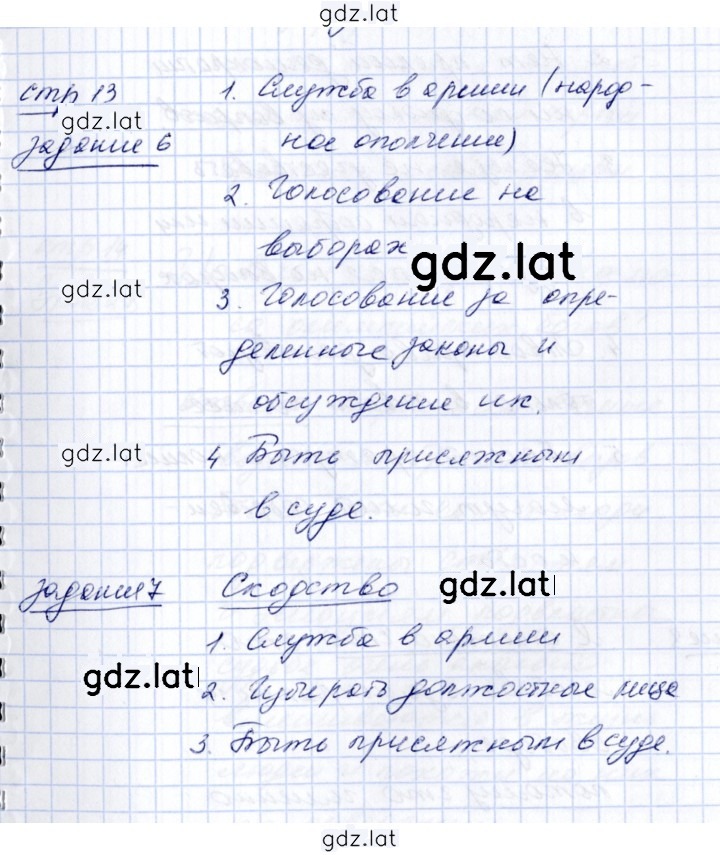 gdz.lat
стр 13 1. Служба в армии (народ-
gdz.lat
задание 6 ное ополчение)
2. Голосование на
выборах
gdz.lat
gdz.lat
3. Голосование за опре-
деленные законы и
обсуждение их.
gdz.lat
4 Быть присяжным
в суде.
задание 7 Сходство
gdz.lat
1. Служба в армии
gdz.lat
2. Избирать должостные лица
3. Быть присяжным в суде.
gdz.lat